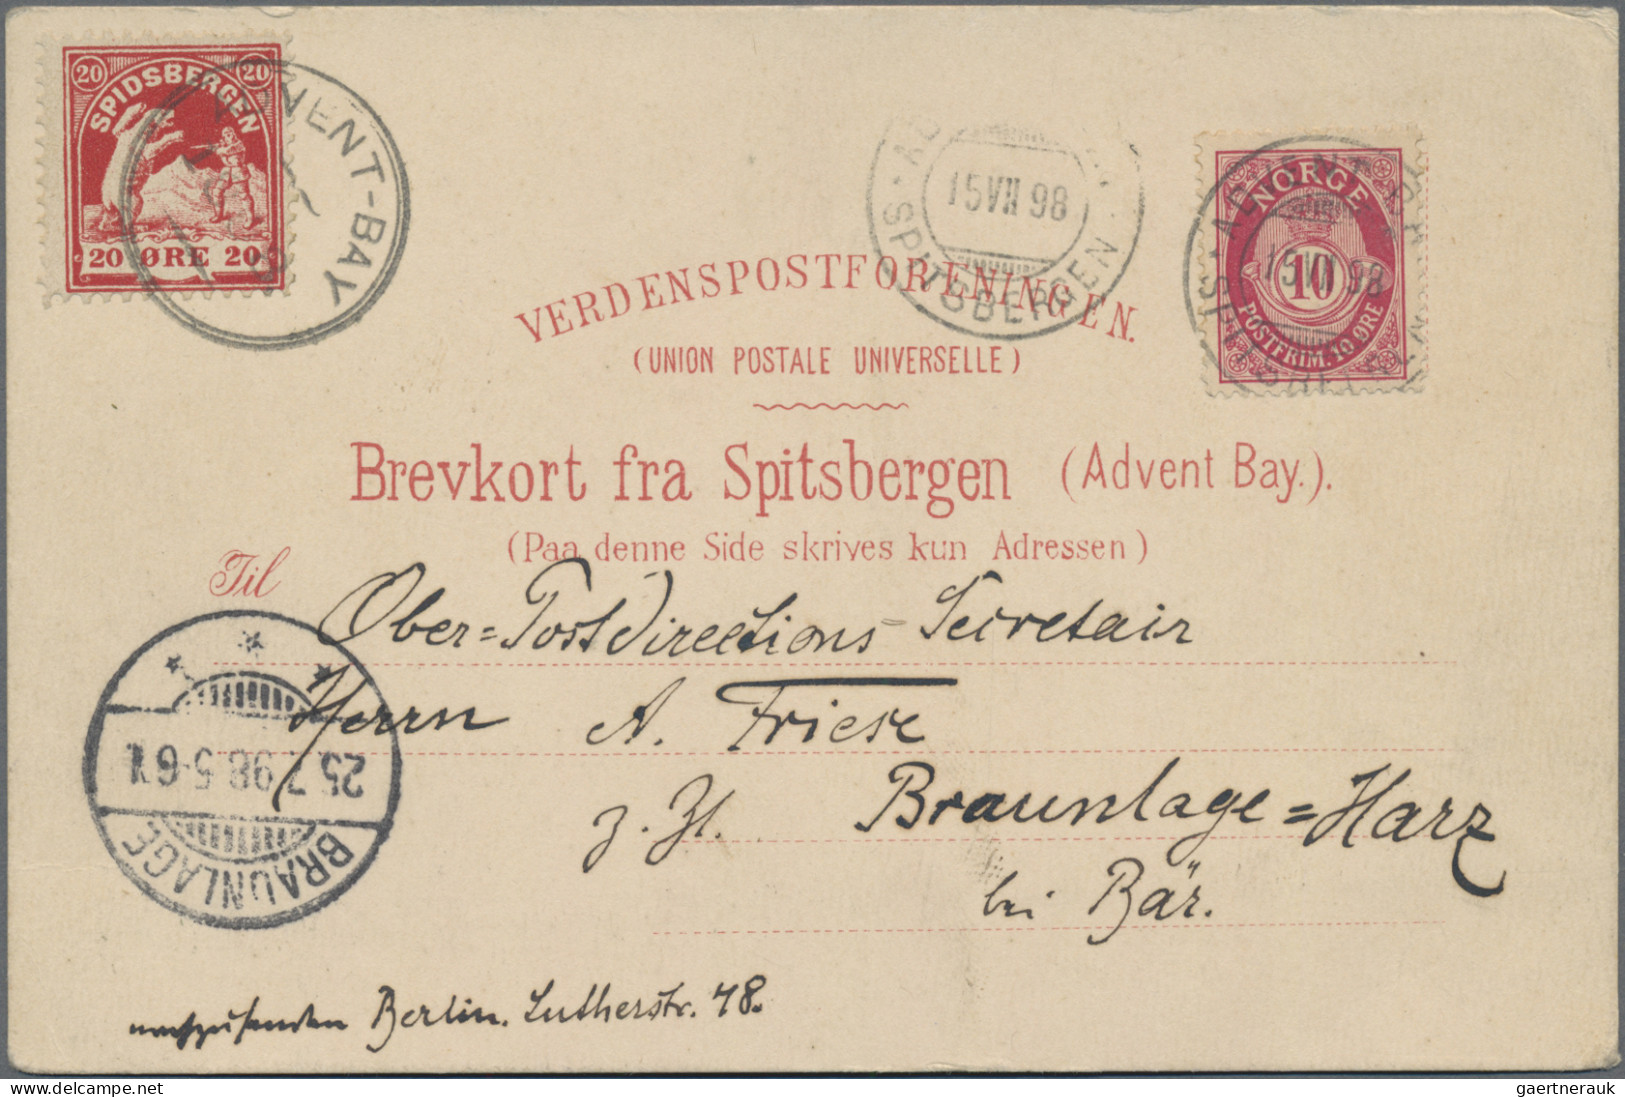 20 20
SPIDSBERGEN
20 ØRE 20
ADVENT-BAY
15 VII 98
SPITSBERGEN
NORGE
10
POSTFRIM. 10 ØRE
ADVENT BAY
15 VII 98
SPITSBERGEN
VERDENSPOSTFORENINGEN.
(UNION POSTALE UNIVERSELLE)
Brevkort fra Spitsbergen (Advent Bay.).
(Paa denne Side skrives kun Adressen)
Til
Ober=Postdirections-Secretair
Herrn A. Friese
z. Zt. Braunlage=Harz
bei Bär.
BRAUNLAGE
25.7.98.5-6N.
nachzusenden Berlin. Lutherstr. 48.
gaertnerauk